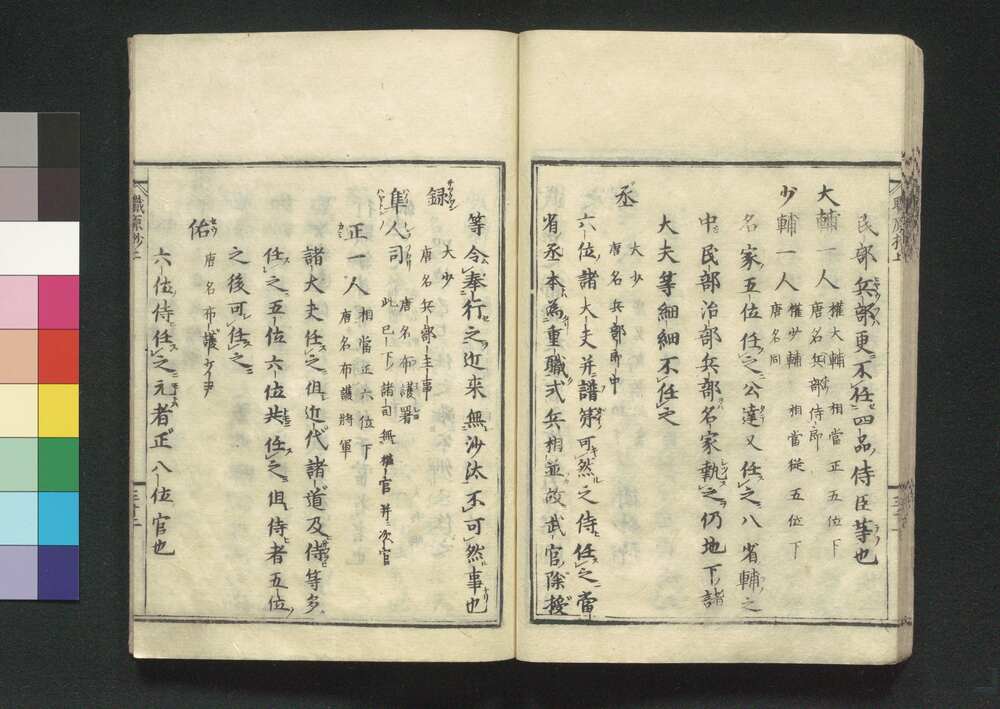 民部兵部更不任四品侍臣等也
大輔一人 權大輔 相當正五位下
唐名兵部侍郎
少輔一人 權少輔 相當從五位下
唐名同
名家五位任之公達又任之八省輔之
中民部治部兵部名家執之仍地下諸
大夫等細細不任之
丞 大少
唐名兵部郎中
六位諸大夫并譜第可然之侍任之當
省丞本為重職式兵相並故武官除授
等令奉行之近來無沙汰不可然事也
録 大少
唐名兵部主事
隼人司 唐名布護署
此已下諸司無權官并次官
正一人 相當正六位下
唐名布護將軍
諸大夫任之但近代諸道及侍等多
任之五位六位共任之但侍者五位
之後可任之
佑 唐名布護
六位侍任之元者正八位官也
職原抄二
三十二